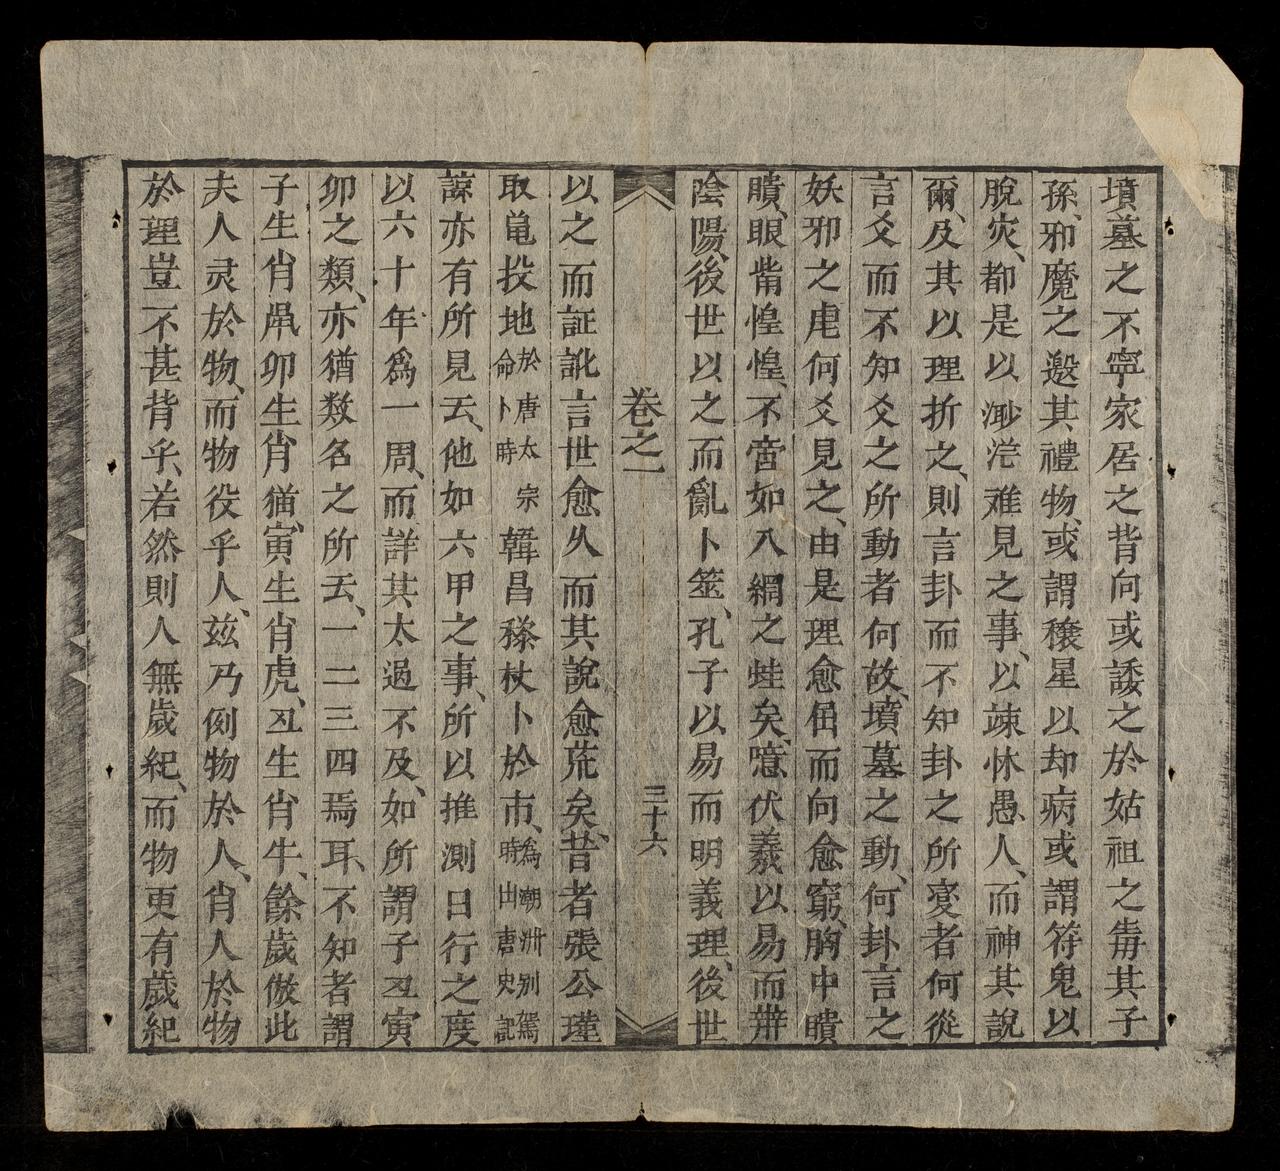 墳墓之不寧家居之背向或諉之於姑祖之眚其子
孫、邪魔之邀其禮物、或謂穣星以却病或謂符鬼以
脫灾、都是以渺茫难見之事、以竦怵愚人、而神其說
爾、及其以理折之、則言卦而不知卦之所変者何從
言爻而不知爻之所動者何故、墳墓之動、何卦言之
妖邪之虐何爻見之、由是理愈屈而向愈窮、胸中瞶
瞶、眼眥惶惶、不啻如入網之蛙矣、噫、伏羲以易而辨
陰陽、後世以之而亂卜筮、孔子以易而明義理、後世
卷之一 三十六
以之而証訛言世愈久而其說愈荒矣、昔者張公瑾
取亀投地於唐太宗命卜時韓昌𣜬杖卜於市、為潮州別駕時出唐史記
諒亦有所見云、他如六甲之事、所以推測日行之度
以六十年爲一周、而詳其太過不及、如所謂子丑寅
卯之類、亦猶数名之所云、一二三四焉耳、不知者謂
子生肖鼠卯生肖猫、寅生肖虎、丑生肖牛、餘歲倣此
夫人灵於物、而物役乎人、玆乃例物於人、肖人於物
於理豈不甚背乎、若然則人無歲紀、而物更有歲紀